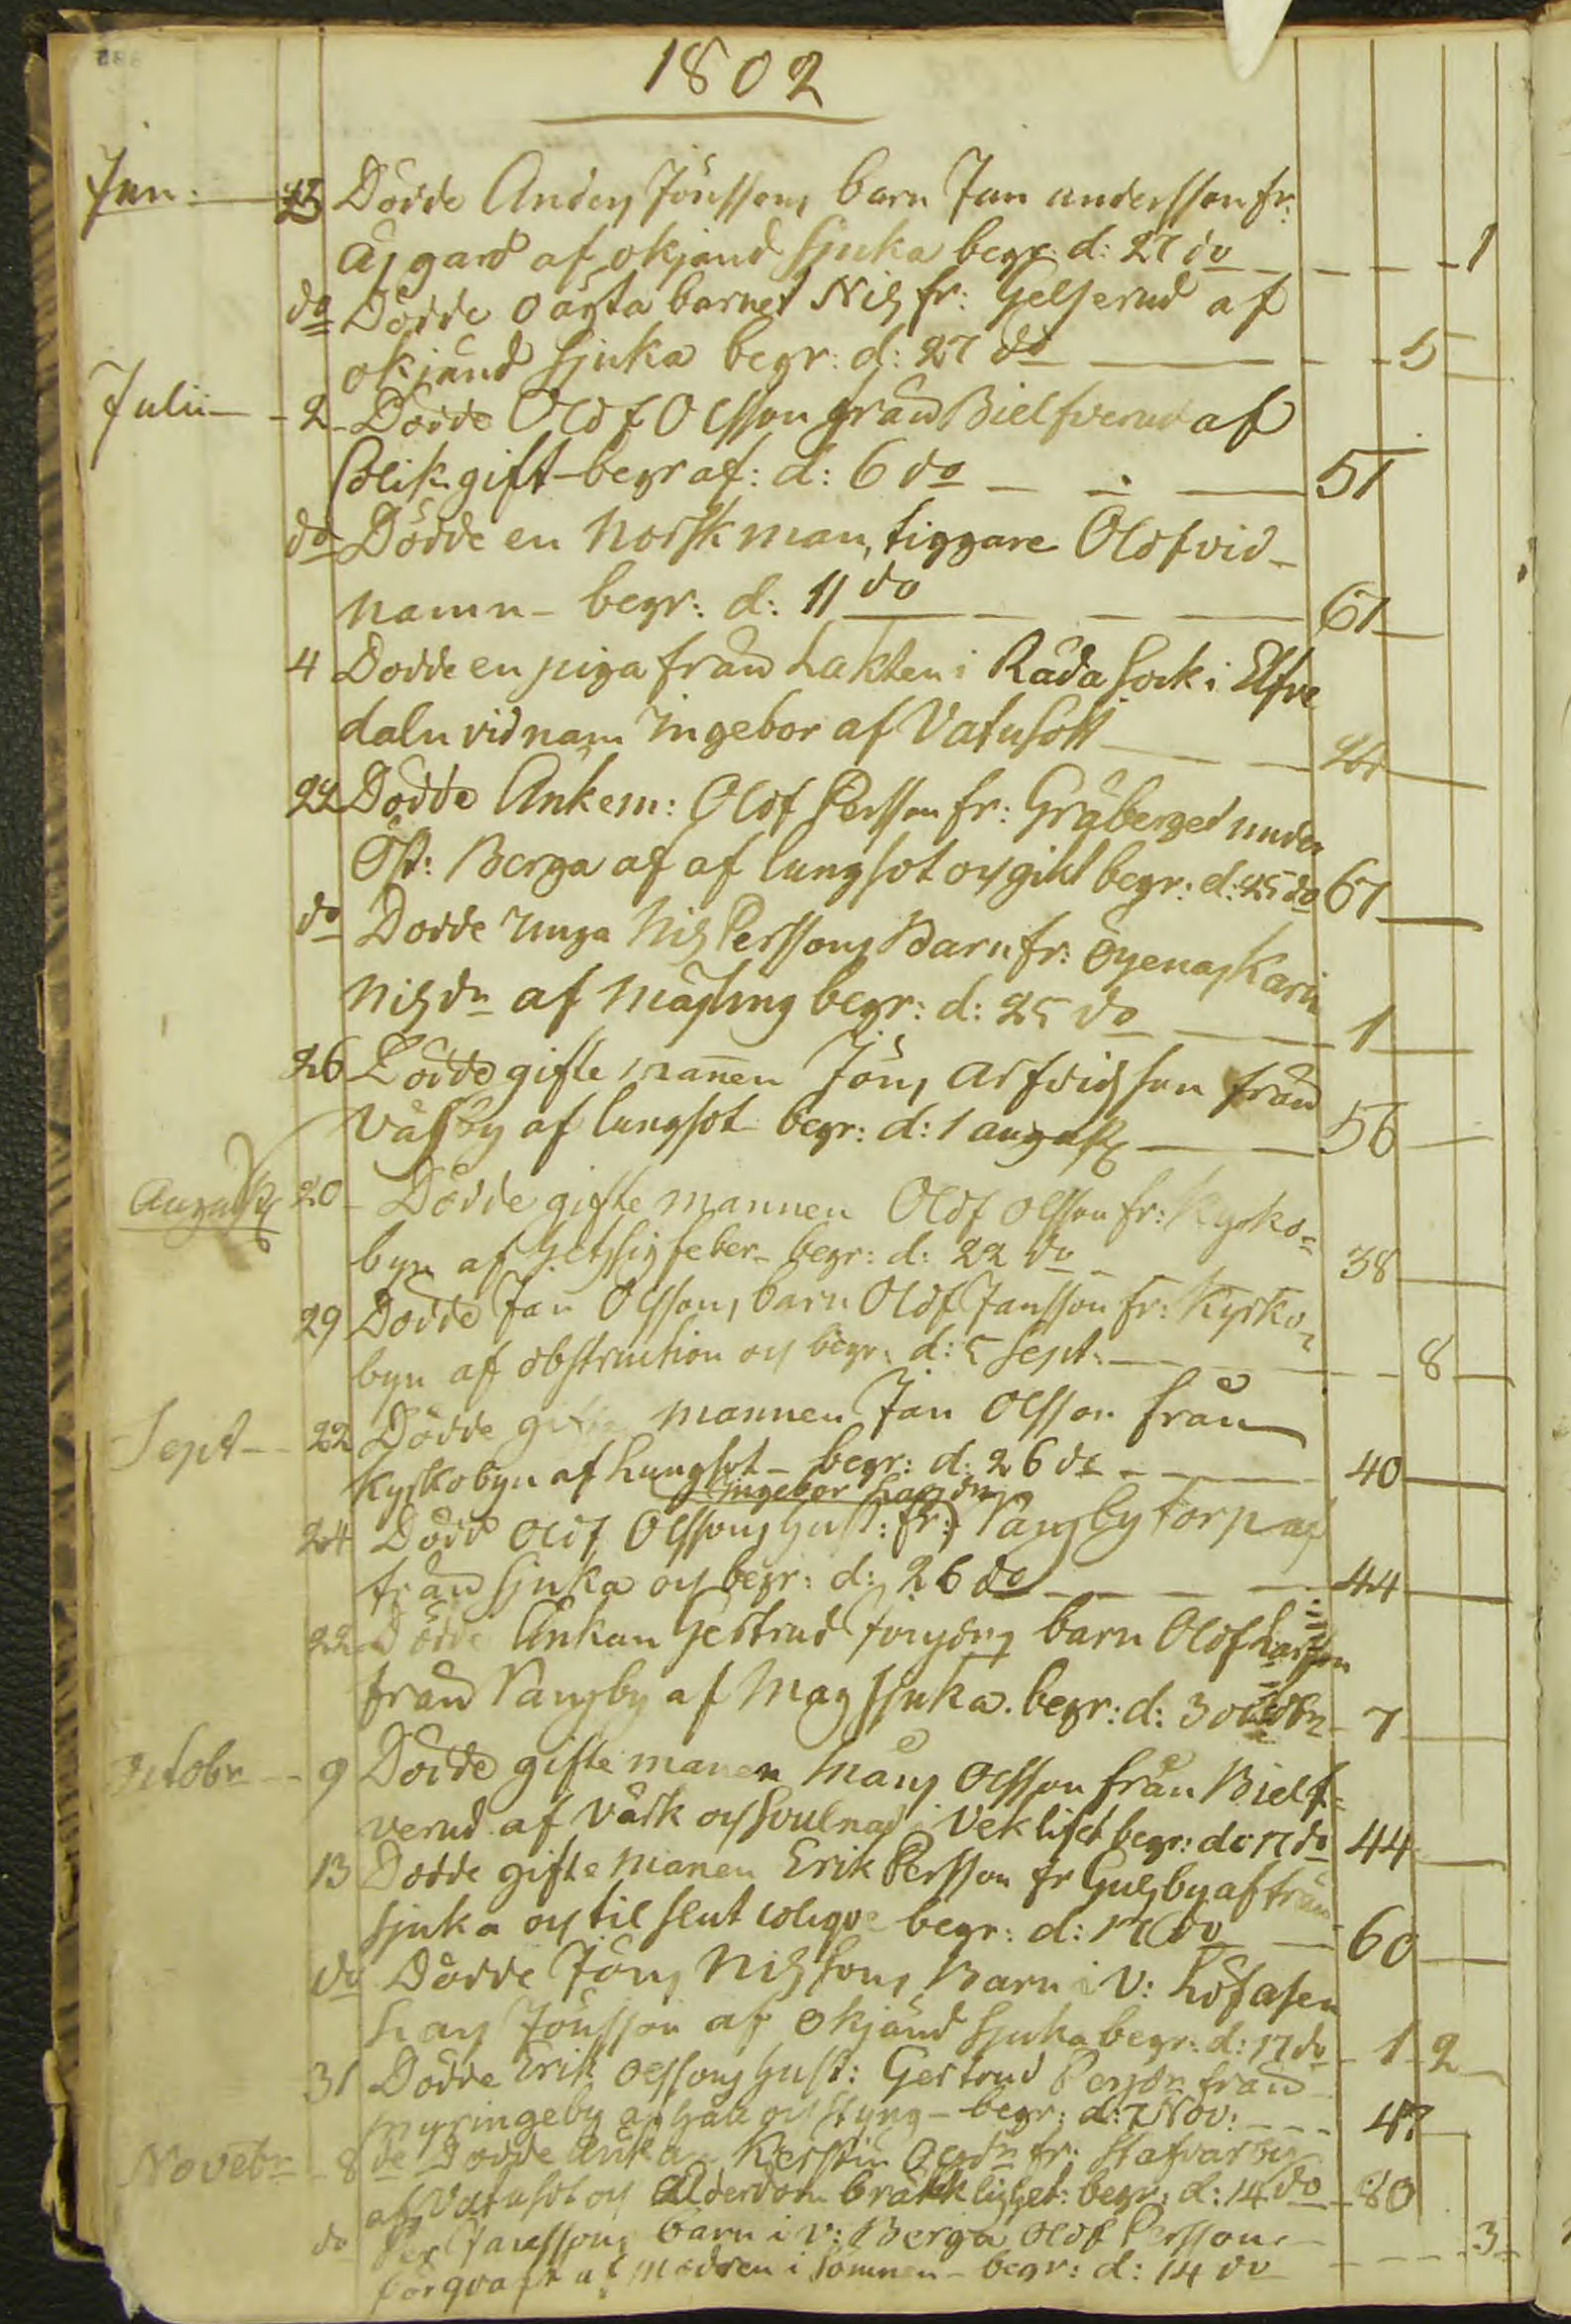 1802
Jun: 23 Dödde Anders Jönssons barn Jan andersson fr:
Åsgard af okjänd sjuka begr: d: 27 do 1
do Dödde oäkta barnet Nils fr: Gelserud af
okjänd sjuka begr: d: 27 do 5
Julii 2 Dödde Olof Olsson från Bielfverud af
Colik gift begraf: d: 6 do 51
do Dödde en Norsk man, tiggare Olof vid
namn begr: d: 11 do 61
4 Dodde en piga från Lakten i Råda Sock i Elfve
daln vid nam Ingebor af Vatusott
24 Dödde Änkem: Olof Persson fr: Gråberget under
Öst: Berga af af lungsot och gikt begr: d: 25 do 67
do Dodde unga Nils Perssons Barn fr: Öyenäs Karin
Nilsdr af mäsling begr: d: 25 do 1
26 Dödde gifte mannen Jöns Arfvidsson från
Väsby af lungsot begr: d: 1 august 56
August 20 Dödde gifte mannen Olof Olsson fr: Kyrko=
byn af hetsig feber begr: d: 22 do 38
29 Dödde Jan Olssons barn Olof Jansson fr: Kyrko=
byn af obstruction och begr: d: 5 Sept: 8
Sept 22 Dödde gifte mannen Jan Olsson från
Kyrkobyn af Lungsot begr: d: 26 do 40
Ingebor Larsdr
24 Död Olof Olssons Hust: fr: Vangby torp af
trånsjuka och begr: d: 26 do 44
22 Dödde Änkan Gertrud barn Olof Larsson
från Vangby af Magsjuka. begr: d: 3 octobr 7
Octobr 9 Dödde gifte manen Måns Olsson från Bielf=
verud af värk och svulnad i veklifvet begr: d: 17 do 44
13 Dödde gifte manen Erik Persson fr Gulsby af trån
sjuka och til slut colique begr: d: 17 do 60
do Dödde Jöns Nilssons Barn i V: Löfåsen
Lars Jönsson af okjänd sjuka begr: d: 17 do 1 2
31 Dödde Erik Olssons Hust: Gertrud Persdr från
Myringeby af håll och styng begr: d: 7 Nov: 47
Novebr 8 de Dodde änkan Kerstin Olsdr fr: Stafvarby
af Vatusot och Ålderdoms bräcklighet: begr: d: 14 do 80
do Per Barn i V: Berga Olof Persson
förqvafd af modren i sömnen begr: d: 14 do 3